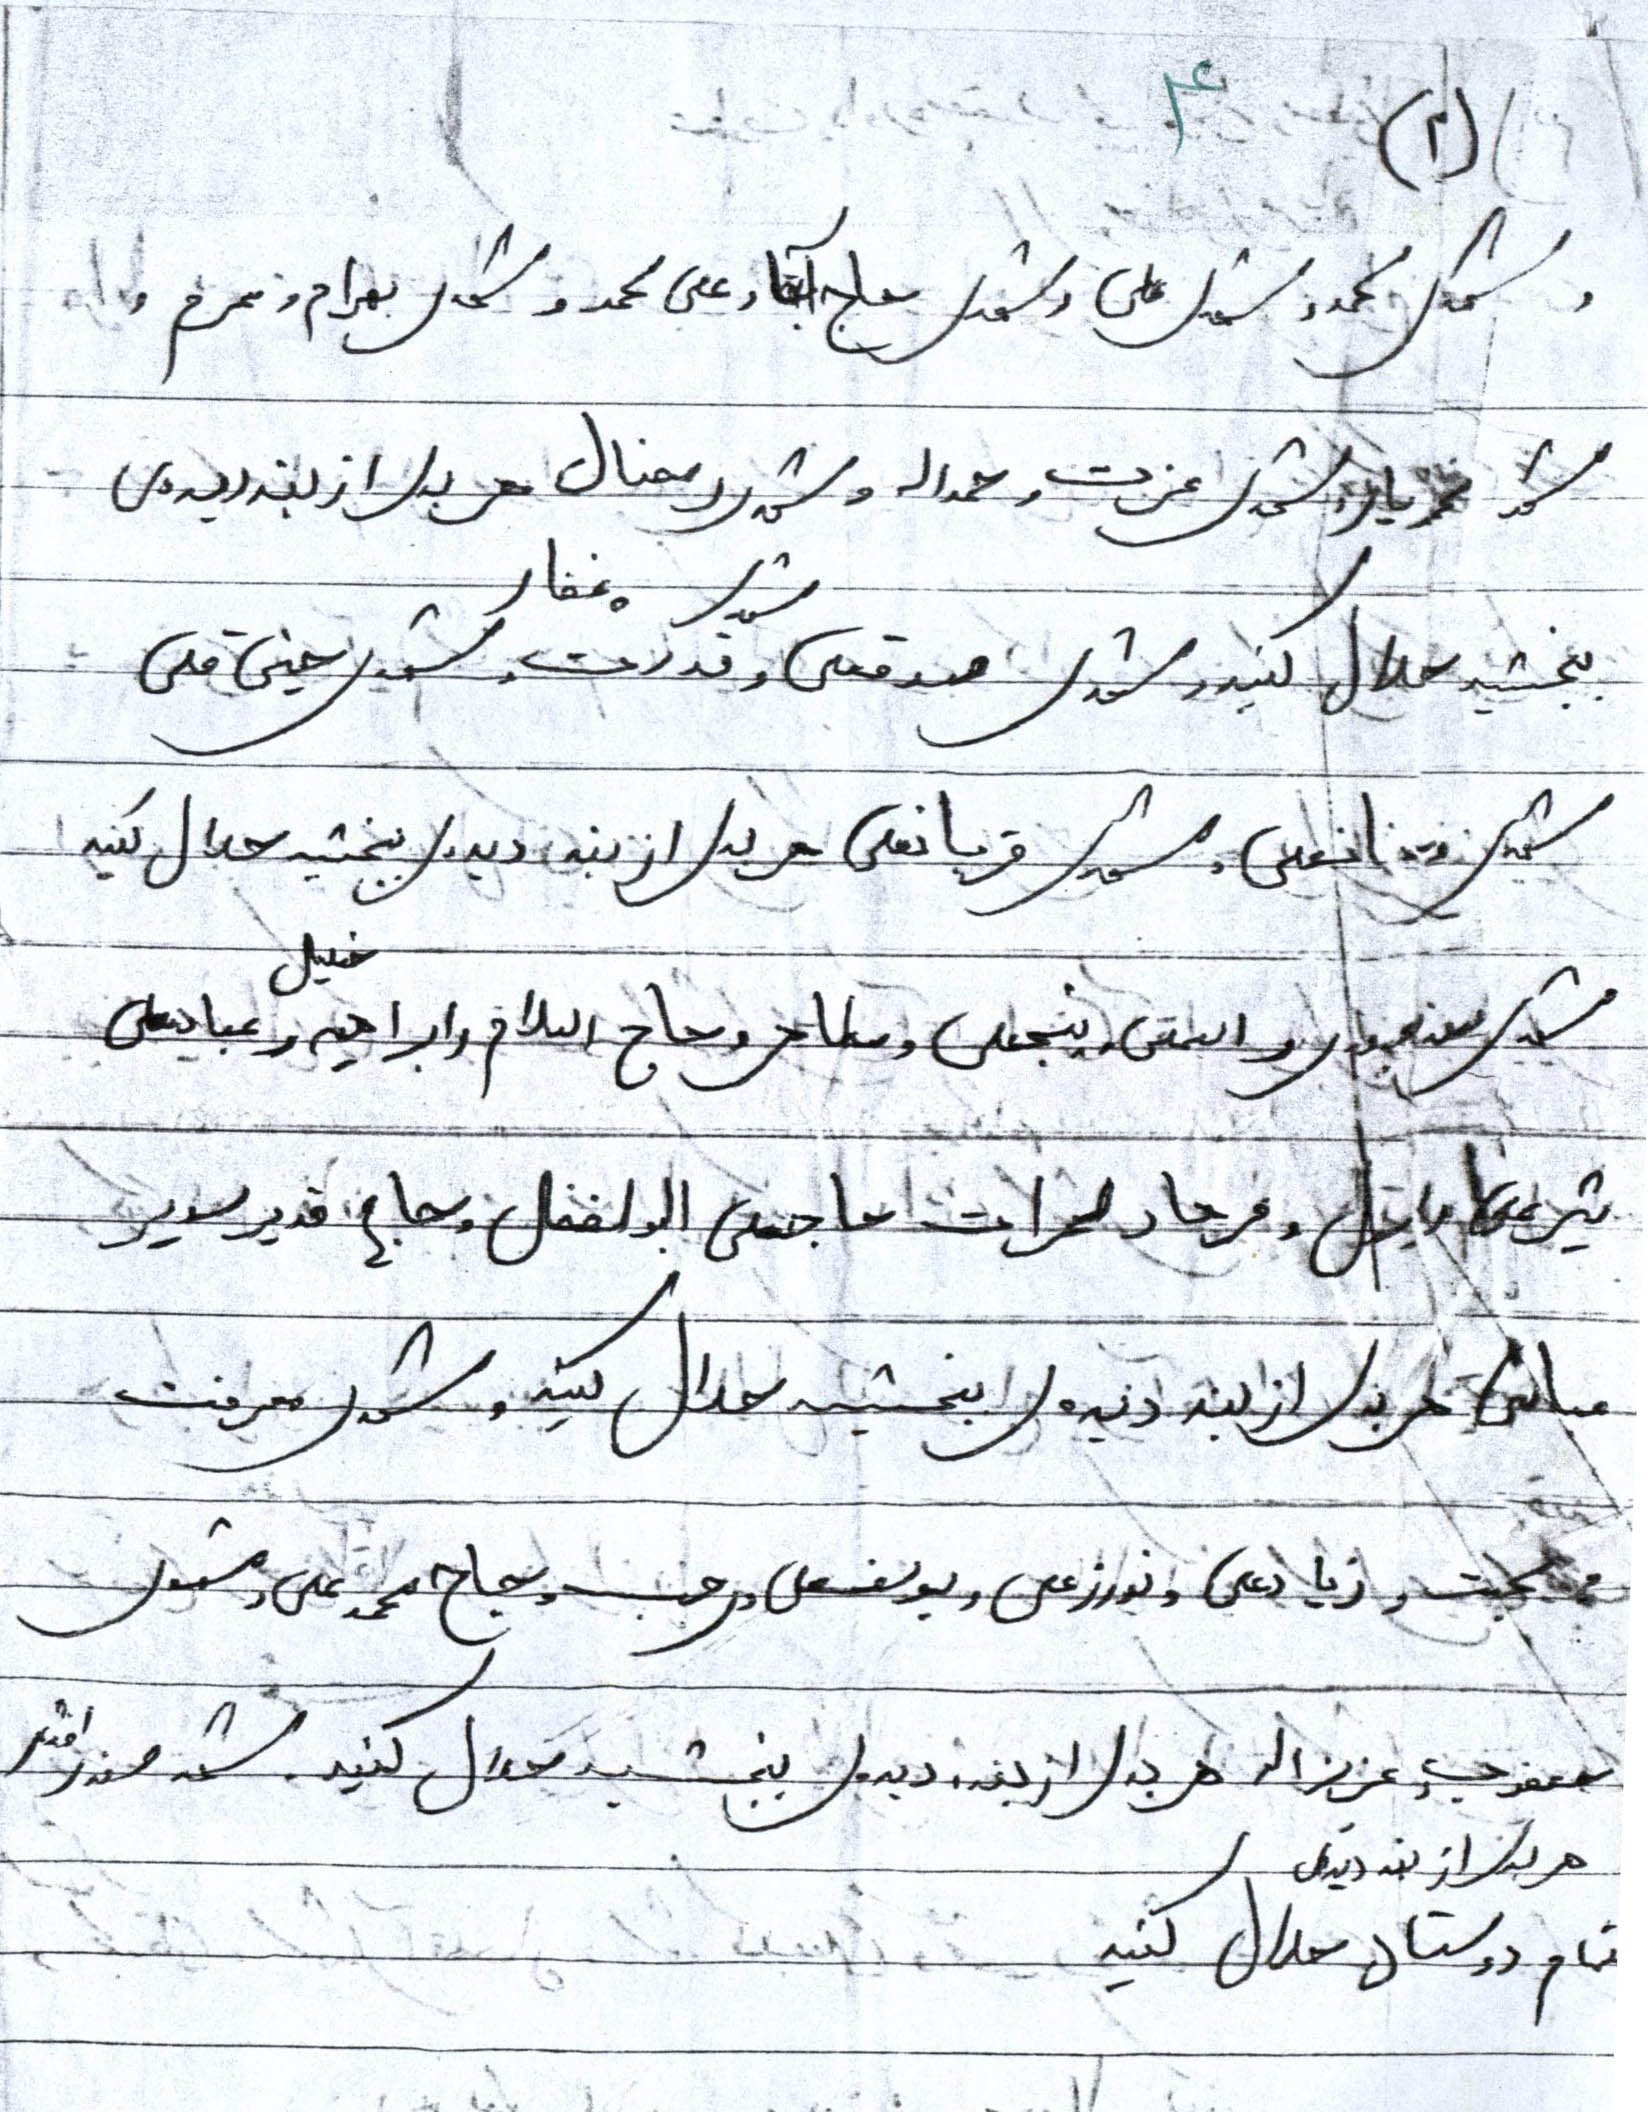 ۴
(۲)
و مشهدی محمد و مشهدی علی و مشهدی حاج آقا و علی محمد و مشهدی بهرام و محرم و
مشهدی عزت و حمداله و مشهدی رمضان هر بدی از بنده دیدی
مشهدی غفار
ببخشید حلال کنید و مشهدی صدقعلی و قدرت و مشهدی حسینقلی
مشهدی و مشهدی قربانعلی هر بدی از بنده دیدی ببخشید حلال کنید
خلیل
مشهدی و پنجعلی و حاج اسلام و ابراهیم و عبادعلی
شیرعلی و فرهاد حاجعلی ابولفضل و حاج قدیر
هر بدی از بنده دیدی ببخشید حلال کنید و مشهدی معرفت
محبت و زیادعلی و نورزعلی و یوسفعلی و رجب و حاج محمدعلی و مشهدی
یعقوب و عزیزاله هر بدی از بنده دیدی ببخشید حلال کنید. مشهدی صفدر
هر بدی از بنده دیدی
تمام دوستان حلال کنید